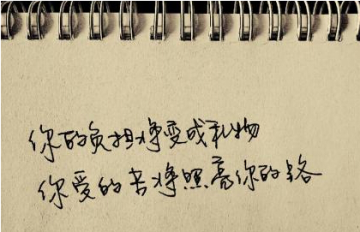 你的负担将变成礼物
你爱的苦将照亮你的路